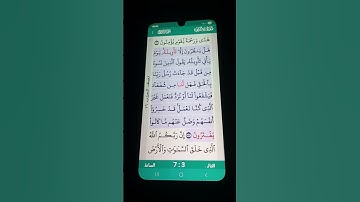 هُدًى وَرَحْمَةً لِّقَوْمٍ يُؤْمِنُونَ
هَلْ يَنظُرُونَ إِلَّا تَأْوِيلَهُۥ يَوْمَ
يَأْتِى تَأْوِيلُهُۥ يَقُولُ ٱلَّذِينَ نَسُوهُ
مِن قَبْلُ قَدْ جَآءَتْ رُسُلُ رَبِّنَا
بِٱلْحَقِّ فَهَل لَّنَا مِن شُفَعَآءَ
فَيَشْفَعُوا۟ لَنَآ أَوْ نُرَدُّ فَنَعْمَلَ غَيْرَ
ٱلَّذِى كُنَّا نَعْمَلُ قَدْ خَسِرُوٓا۟
أَنفُسَهُمْ وَضَلَّ عَنْهُم مَّا كَانُوا۟
يَفْتَرُونَ إِنَّ رَبَّكُمُ ٱللَّهُ
ٱلَّذِى خَلَقَ ٱلسَّمَٰوَٰتِ وَٱلْأَرْضَ
7:3